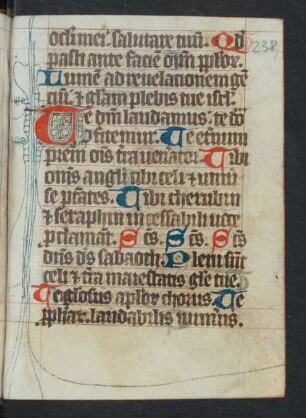 oculi mei salutare tuū. Qd
pasti ante faciē oīm pplor.
Lumē ad reuelacionem gē
ciū. ⁊ glam plebis tue isrl.
Te dm̄ laudamus. te dō
ɔfitemur. Te eternum
prem oīs tra uenerator. Tibi
omīs angli tibi celi ⁊ uniū
se ptates. Tibi cherubin
⁊ seraphin incessabili uoce
pclamāt. Scs. Scs. Scs
dn̄s ds sabaoth. Pleni sūt
celi ⁊ tra maiestatis gle tue.
Te glosus aplor chorus. Te
pphar. laudabilis numus.
238